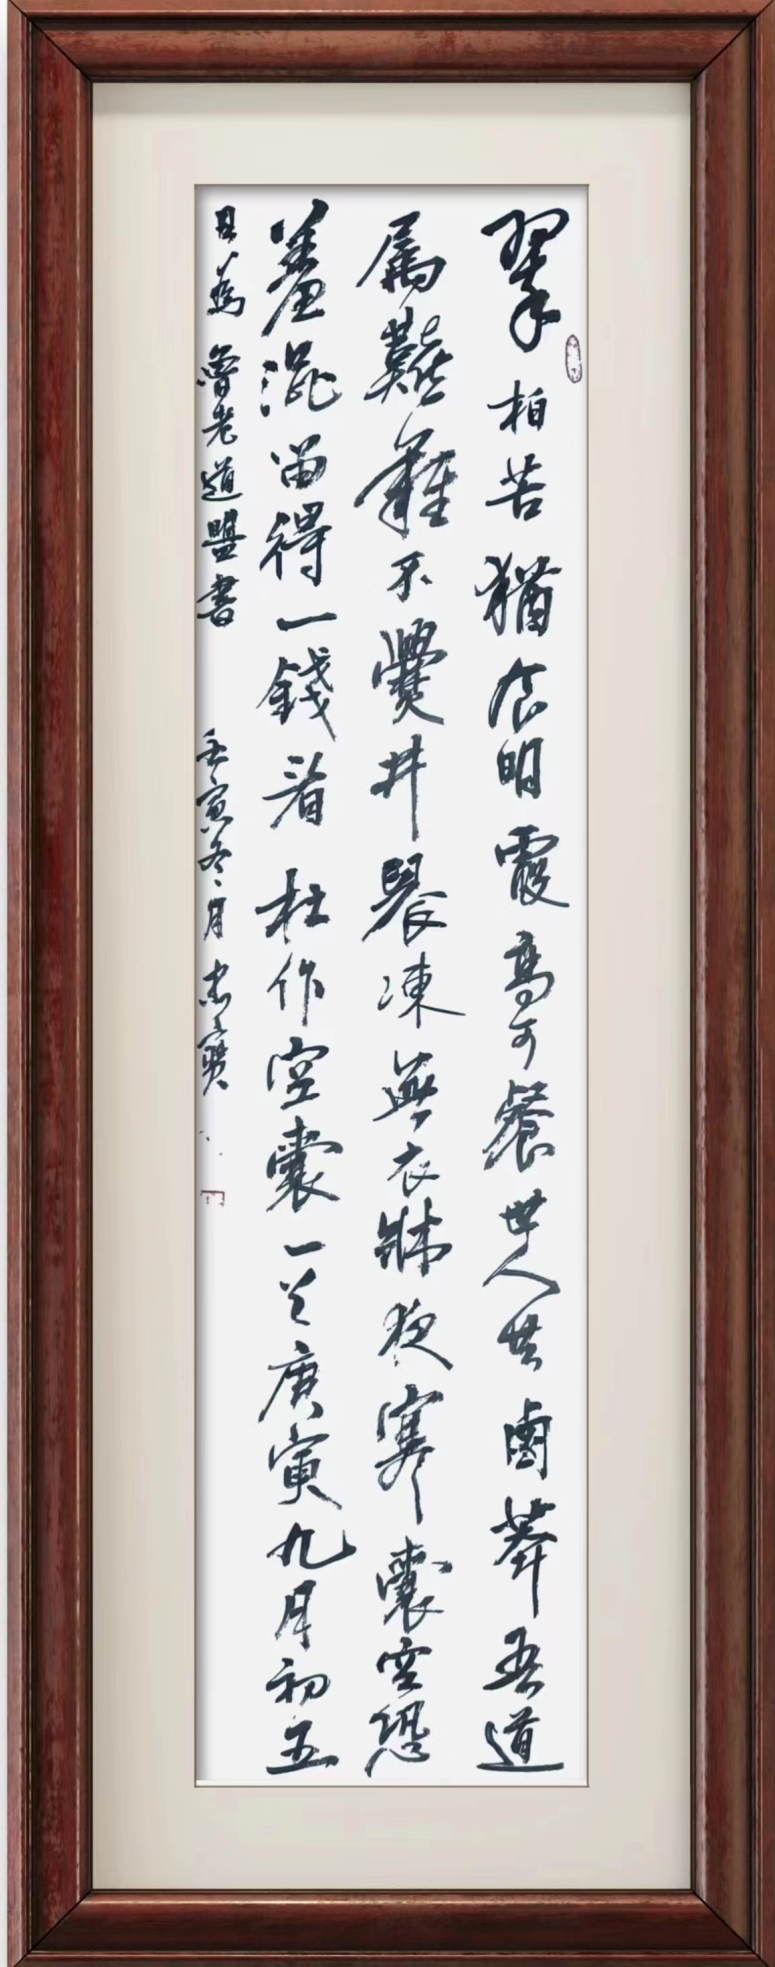 翠柏苦猶食明霞高可餐世人共鹵莽吾道
属艱難不爨井晨凍無衣牀夜寒囊空恐
羞澀留得一錢看杜作空囊一首庚寅九月初五
日為魯老道盟書 壬寅冬月忠